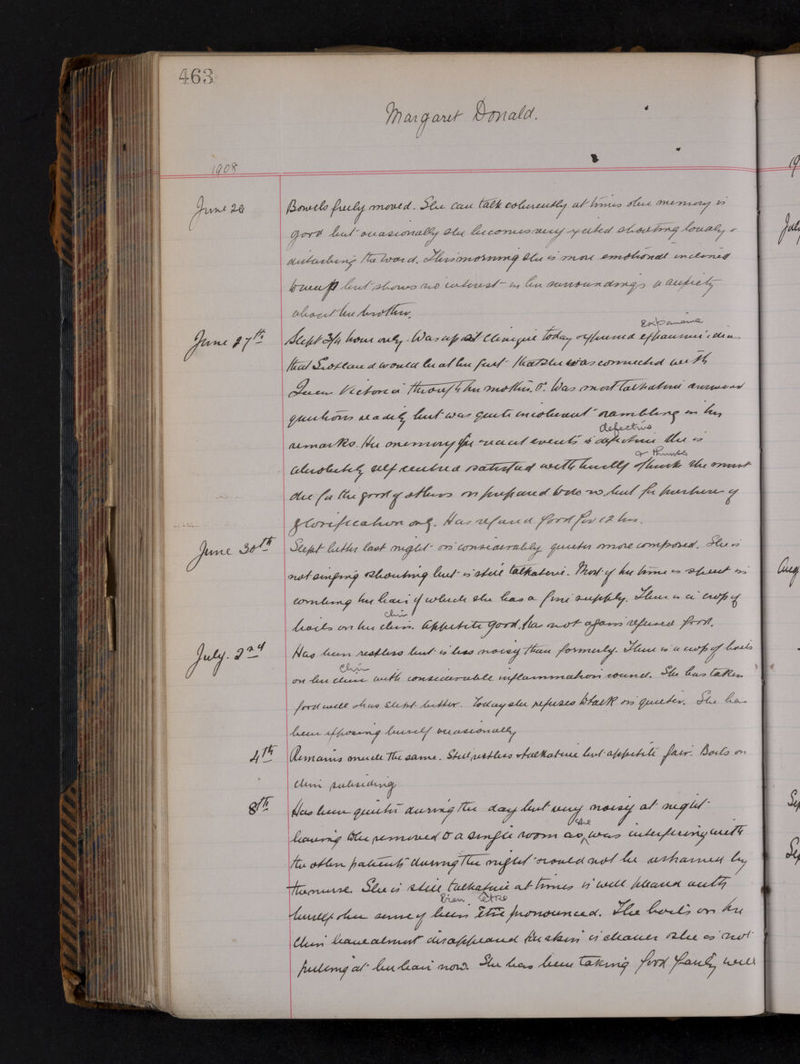 463
Margaret Donald.
1908
June 26 Bowels freely moved. She can talk coherently at times & her memory is
good but occasionally she becomes very excited shouting loudly &
disturbing the ward. This morning she is more emotional inclined
to weep but shows no interest in her surroundings & anxiety
about her brother.
Expansive
June 27th Slept 3/4 hour only. Was up at Clinique today & expressed expansive idea
that Scotland would be at her feet & that she was connected with
Queen Victoria through her mother. Was most talkative answered
questions readily but was quite incoherent & rambling in her
defective
remarks. Her memory for recent events is defective she is
& thinks
absolutely self centred & satisfied with herself & thinks she must
die for the good of others & is prepared to do so but for purpose of
glorification only. Has refused food for 12 hrs.
June 30th Slept better last night & is considerably quieter & more composed. She is
not singing & shouting but is still talkative. Most of her time is spent in
combing her hair of which she has a fine supply. There is a crop of
chin
boils on her chin. Appetite good. Has not again refused food.
July. 2nd Has been restless but is less noisy than formerly. There is a crop of boils
Chin
on her chin with considerable inflammation round. She has taken
food well & has slept better. Today she refuses to talk & is quieter. She has
been exposing herself occasionally
4th Remains much the same. Still restless & talkative but appetite fair. Boils on
chin subsiding
8th Has been quieter during the day but very noisy at night
she
having to be removed to a single room as was interfering with
the other patients during the night & would not be restrained by
the nurse. She is still talkative at times is well pleased with
Bien Etre
herself & her sense of bien être pronounced. The boils on her
chin have almost disappeared her skin is cleaner & she is not
pulling at her hair now. She has been taking food fairly well